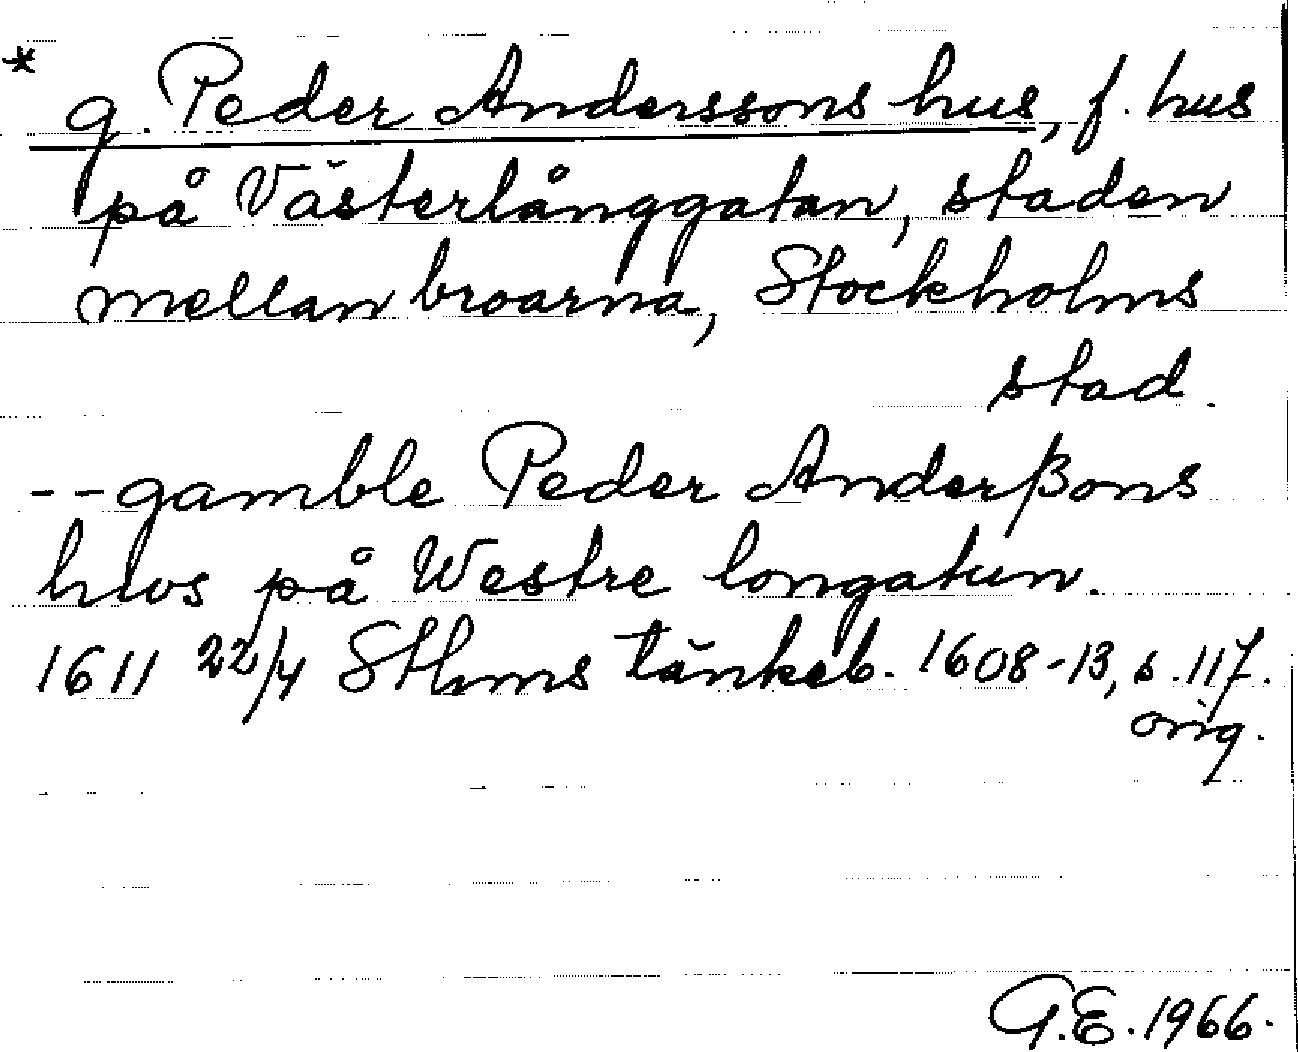 * g. Peder Anderssons hus, f. hus
på Västerlånggatan, staden
mellan broarna, Stockholms
stad.
--gamble Peder Anderßons
hws på Westre longatun.
1611 22/4 Sthms tänkeb. 1608-13, s. 117.
orig.
G.E. 1966.